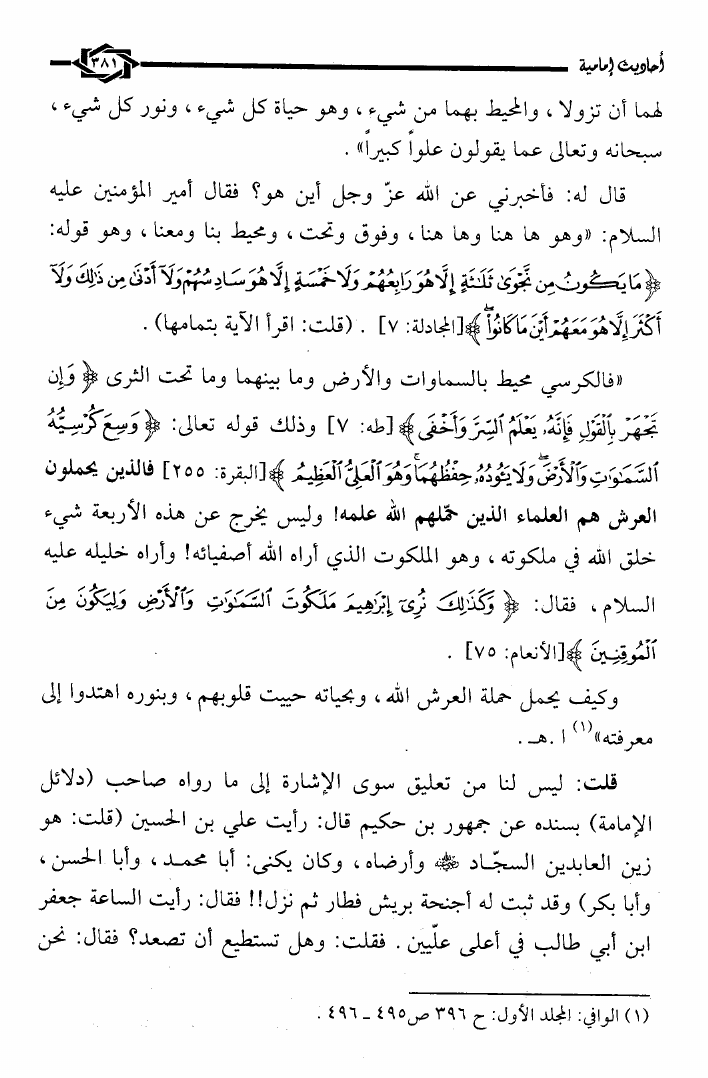 أحاديث إمامية
٣٨١
لهما أن تزولا، والمحيط بهما من شيء، وهو حياة كل شيء، ونور كل شيء،
سبحانه وتعالى عما يقولون علواً كبيراً» .
قال له: فأخبرني عن الله عزّ وجل أين هو؟ فقال أمير المؤمنين عليه
السلام: «وهو ها هنا وها هنا، وفوق وتحت، ومحيط بنا ومعنا، وهو قوله:
﴿ مَا يَكُونُ مِن نَّجْوَىٰ ثَلَاثَةٍ إِلَّا هُوَ رَابِعُهُمْ وَلَا خَمْسَةٍ إِلَّا هُوَ سَادِسُهُمْ وَلَا أَدْنَىٰ مِن ذَٰلِكَ وَلَا
أَكْثَرَ إِلَّا هُوَ مَعَهُمْ أَيْنَ مَا كَانُوا ۖ ﴾ [المجادلة: ٧] . (قلت: اقرأ الآية بتمامها).
«فالكرسي محيط بالسماوات والأرض وما بينهما وما تحت الثرى ﴿ وَإِن
تَجْهَرْ بِالْقَوْلِ فَإِنَّهُ يَعْلَمُ السِّرَّ وَأَخْفَى ﴾ [طه: ٧] وذلك قوله تعالى: ﴿ وَسِعَ كُرْسِيُّهُ
السَّمَٰوَٰتِ وَالْأَرْضَ ۖ وَلَا يَئُودُهُ حِفْظُهُمَا ۚ وَهُوَ الْعَلِيُّ الْعَظِيمُ ﴾ [البقرة: ٢٥٥] فالذين يحملون
العرش هم العلماء الذين حمّلهم الله علمه! وليس يخرج عن هذه الأربعة شيء
خلق الله في ملكوته، وهو الملكوت الذي أراه الله أصفيائه! وأراه خليله عليه
السلام، فقال: ﴿ وَكَذَٰلِكَ نُرِي إِبْرَاهِيمَ مَلَكُوتَ السَّمَٰوَٰتِ وَالْأَرْضِ وَلِيَكُونَ مِنَ
الْمُوقِنِينَ ﴾ [الأنعام: ٧٥] .
وكيف يحمل حملة العرش الله، وبحياته حييت قلوبهم، وبنوره اهتدوا إلى
معرفته»(١) ا .هـ .
قلت: ليس لنا من تعليق سوى الإشارة إلى ما رواه صاحب (دلائل
الإمامة) بسنده عن جمهور بن حكيم قال: رأيت علي بن الحسين (قلت: هو
زين العابدين السجّاد ﷺ وأرضاه، وكان يكنى: أبا محمد، وأبا الحسن،
وأبا بكر) وقد ثبت له أجنحة بريش فطار ثم نزل!! فقال: رأيت الساعة جعفر
ابن أبي طالب في أعلى علّيين. فقلت: وهل تستطيع أن تصعد؟ فقال: نحن
(١) الوافي: المجلد الأول: ح ٣٩٦ ص٤٩٥ ـ ٤٩٦ .